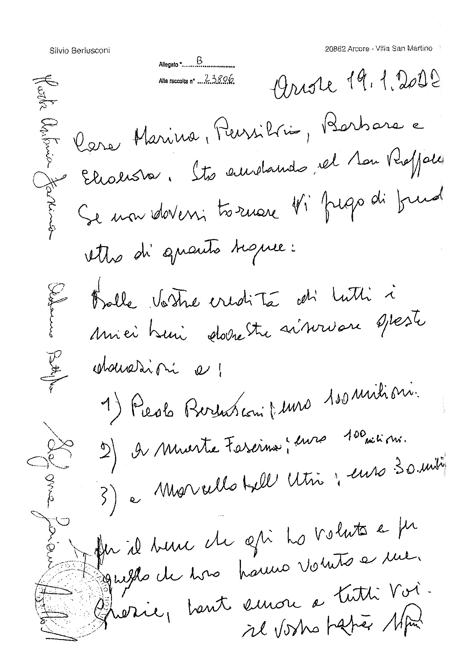 Silvio Berlusconi
20862 Arcore - Villa San Martino
Allegato " B
Alla raccolta n° 23806
Arcore 19.1.2022
Cara Marina, Piersilvio, Barbara e
Eleonora, Sto andando al San Raffaele
Se non dovessi tornare Vi prego di prend
atto di quanto segue:
Dalle vostre eredità di tutti i
miei beni dovreste riservare queste
donazioni a:
1) Paolo Berlusconi; euro 100 milioni.
2) a Marta Fascina; euro 100 milioni.
3) a Marcello Dell'Utri; euro 30 mili
Per il bene che gli ho voluto e per
quello che loro hanno voluto a me.
Grazie, tanto amore a tutti voi.
il vostro papà
Marta Antonia Fascina